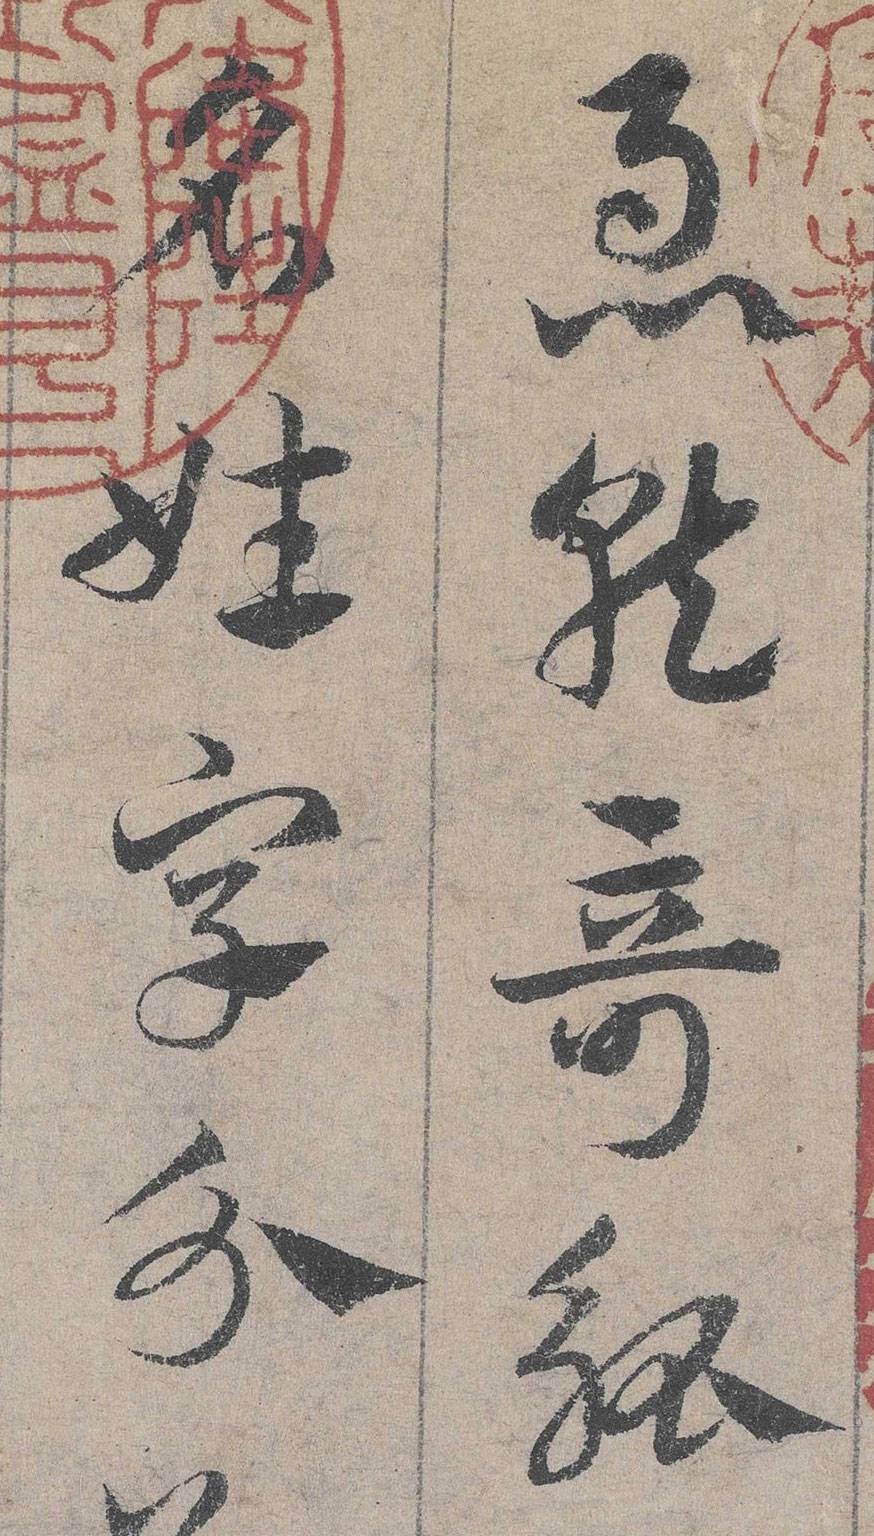 急就竒觚
名姓字分